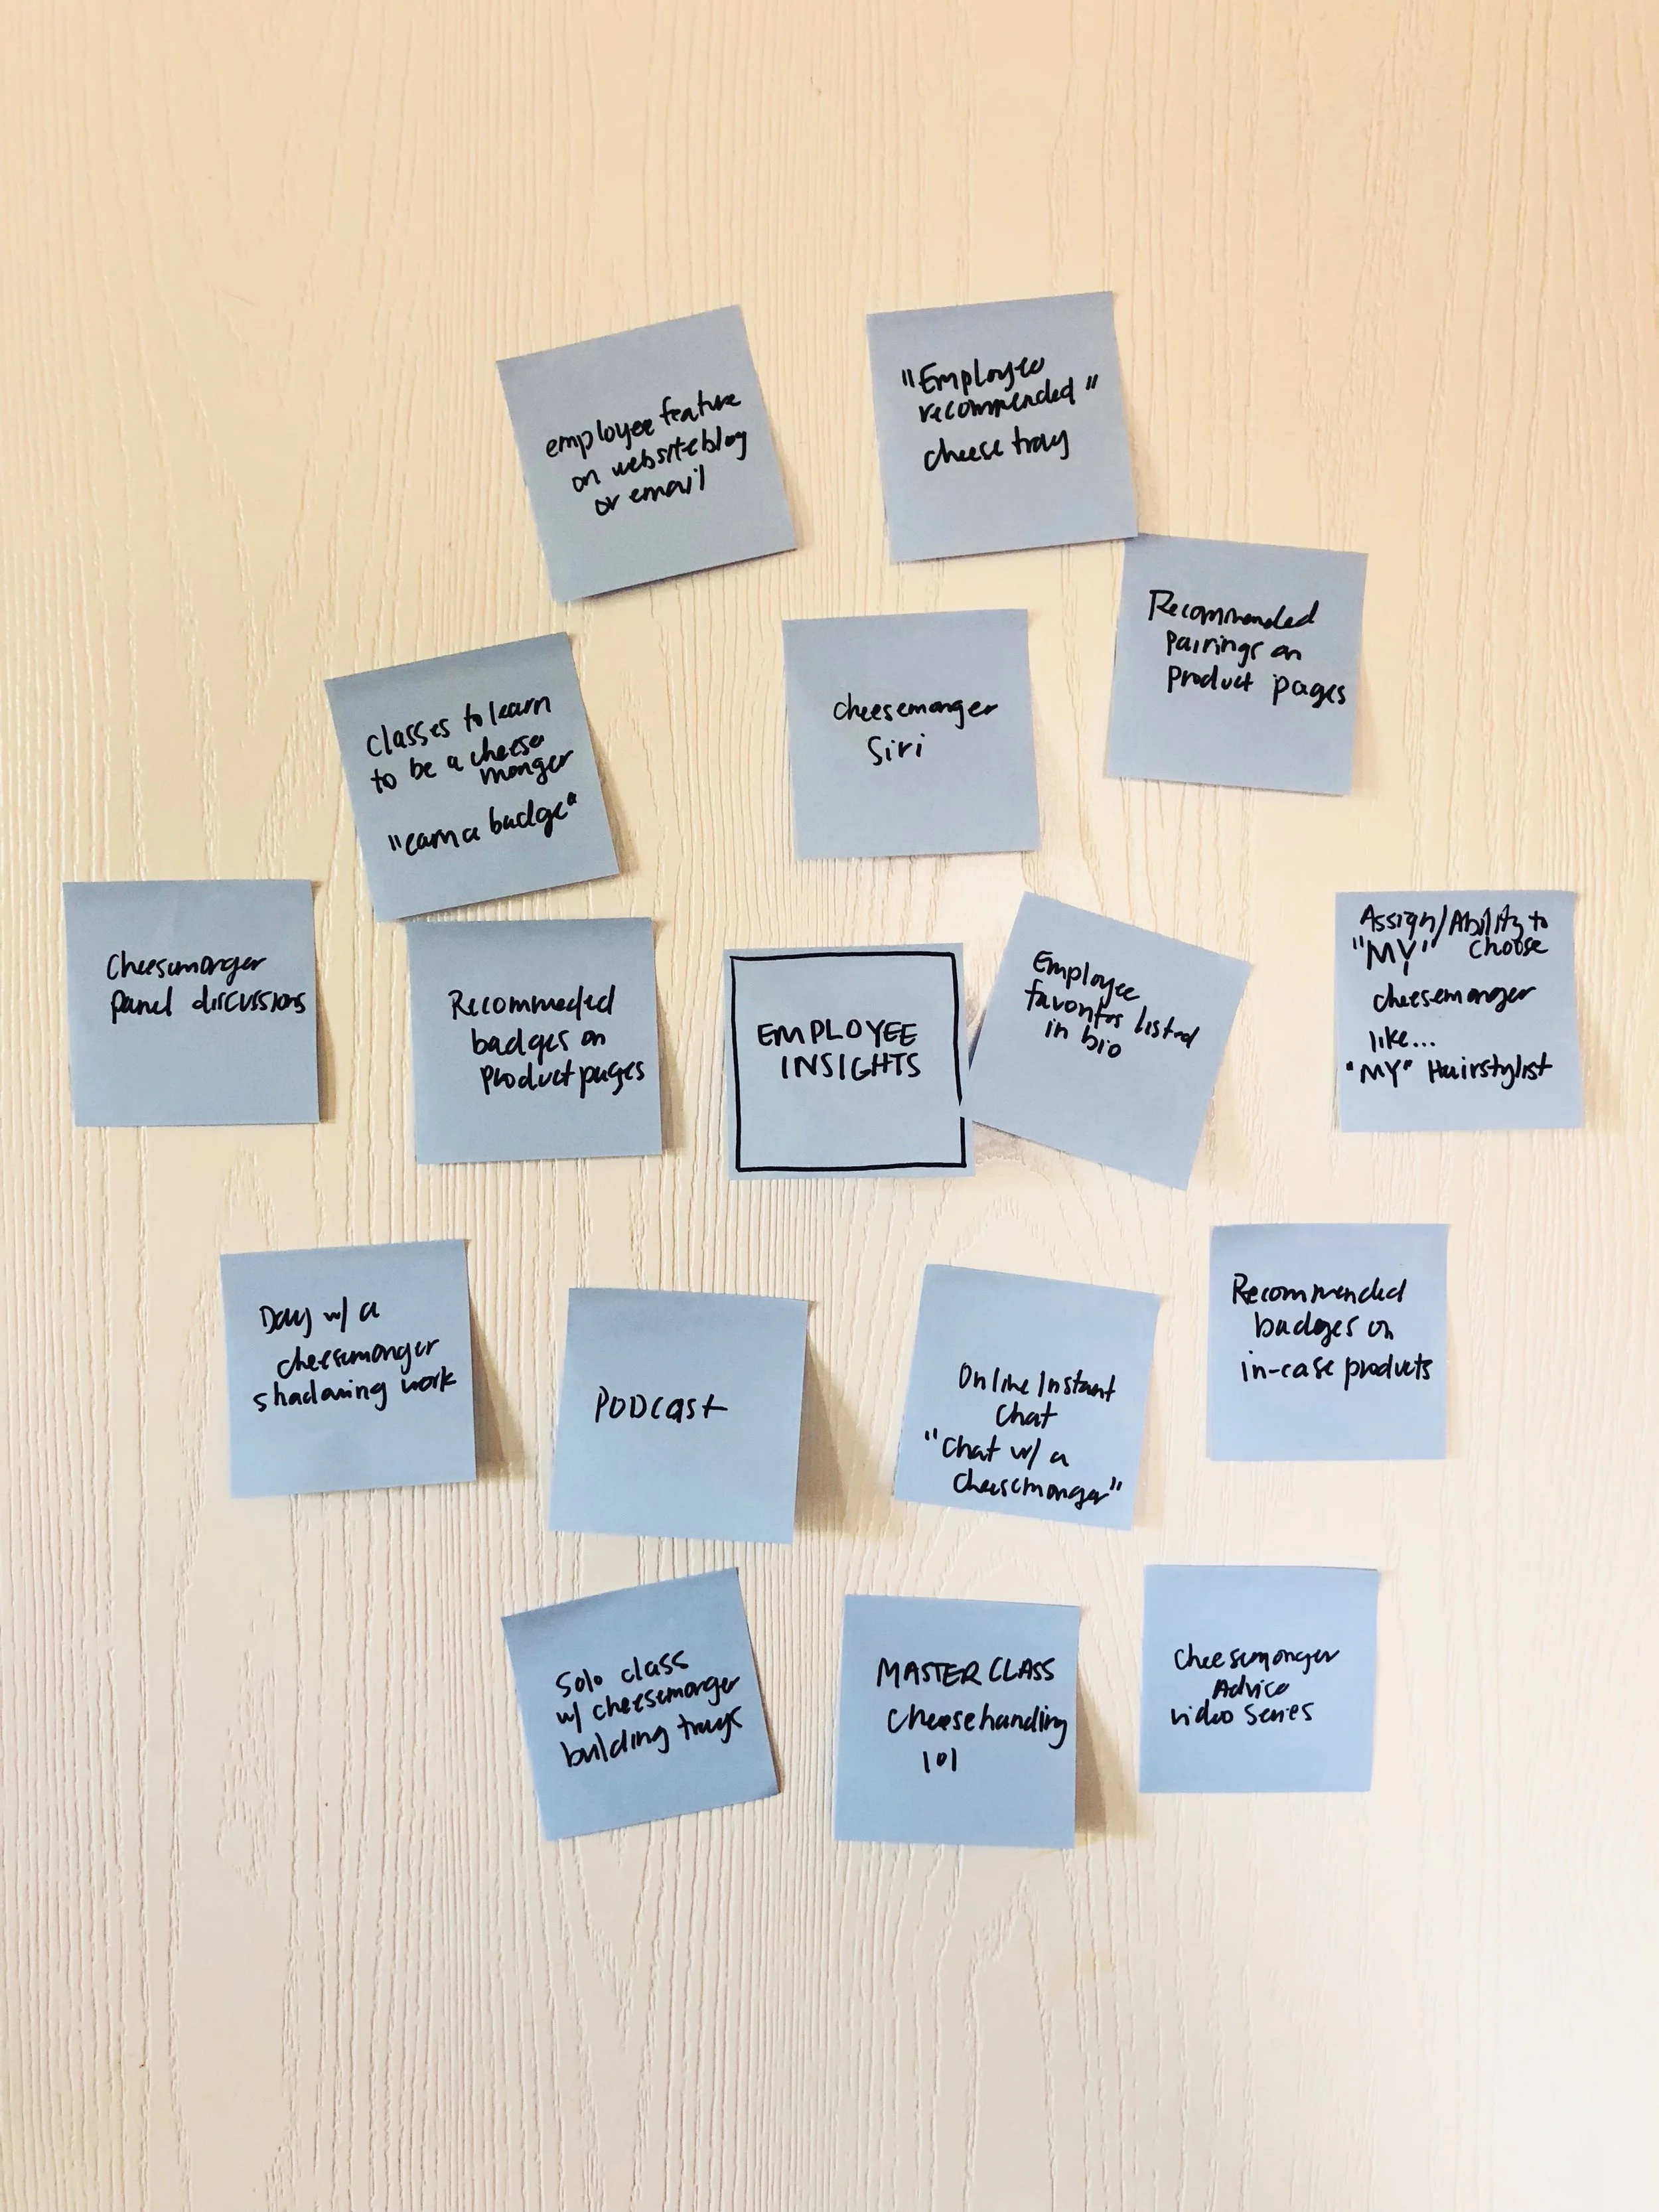 employee feature
on website blog
or email
"Employee
recommended"
cheese tray
Recommended
pairings on
product pages
Classes to learn
to be a cheese
monger
"earn a badge"
cheesemonger
Siri
Cheesemonger
panel discussions
Recommeded
badges on
product pages
EMPLOYEE
INSIGHTS
Employee
favorites listed
in bio
Assign/Ability to
"MY" choose
cheesemonger
like...
"MY" Hairstylist
Day w/ a
cheesemonger
shadowing work
PODcast
Online Instant
Chat
"Chat w/ a
cheesemonger"
Recommended
badges on
in-case products
Solo class
w/ cheesemonger
building trays
MASTERCLASS
Cheesehandling
101
Cheesemonger
Advice
video series